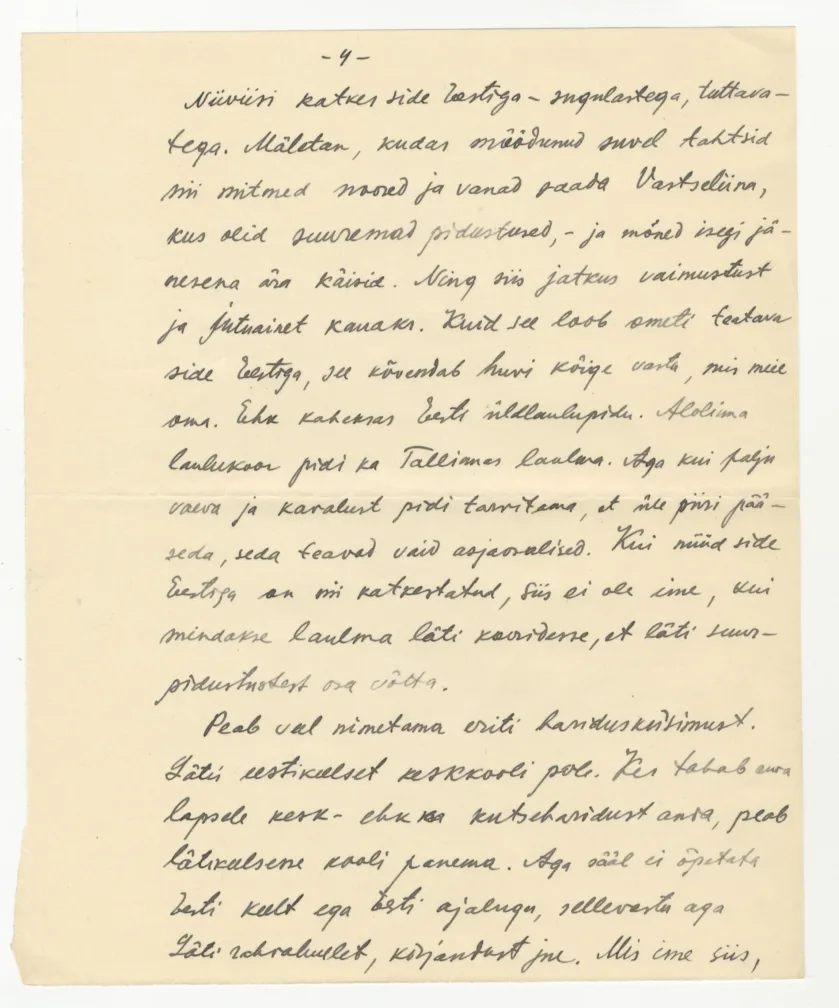 - 4 -
Niiviisi katkes side Eestiga - sugulastega, tuttava-
tega. Mäletan, kudas möödunud suvel tahtsid
nii mitmed noored ja vanad saada Vastseliina,
kus olid suuremad pidustused, - ja mõned isegi jä-
nesena ära käisid. Ning siis jatkus vaimustust
ja jutuainet kauaks. Kuid see loob ometi teatava
side Eestiga, see kõvendab huvi kõige vastu, mis meie
oma. Ehk kaheksas Eesti üldlaulupidu. Alolinna
laulukoor pidi ka Tallinnas laulma. Aga kui palju
vaeva ja kavalust pidi tarvitama, et üle piiri pää-
seda, seda teavad vaid asjaosalised. Kui nüüd side
Eestiga on nii katkestatud, siis ei ole ime, kui
mindakse laulma läti kooridesse, et läti suur-
pidustustest osa võtta.
Peab veel nimetama eriti haridusküsimust.
Lätis eestikeelset keskkooli pole. Kes tahab oma
lapsele kesk- ehk ka kutseharidust anda, peab
lätikeelsesse kooli panema. Aga sääl ei õpetata
Eesti keelt ega Eesti ajalugu, sellevastu aga
Läti rahvaluulet, kirjandust jne. Mis ime siis,